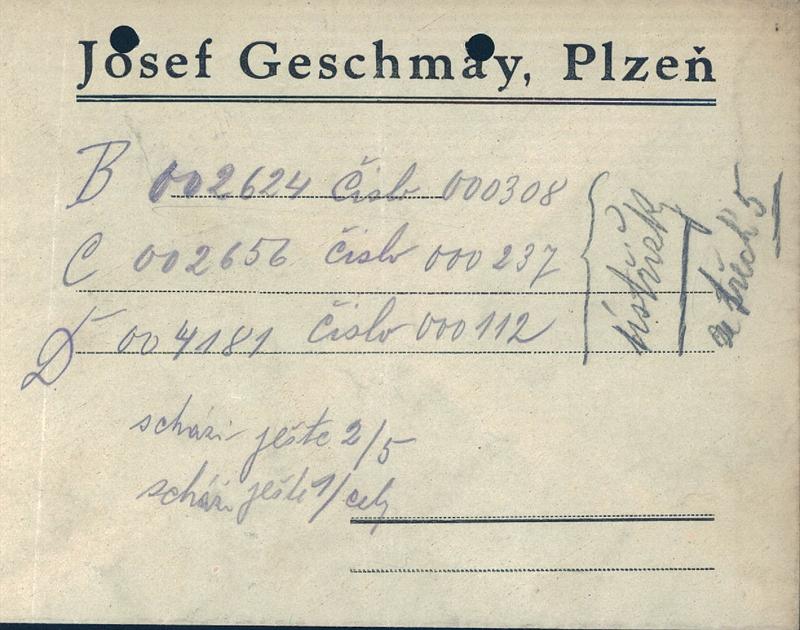 Josef Geschmay, Plzeň
B 002624 číslo 000308
C 002656 číslo 000237
D 004181 číslo 000112
ústřižky
ze všech 5
schází ještě 2/5
schází ještě 1/celý